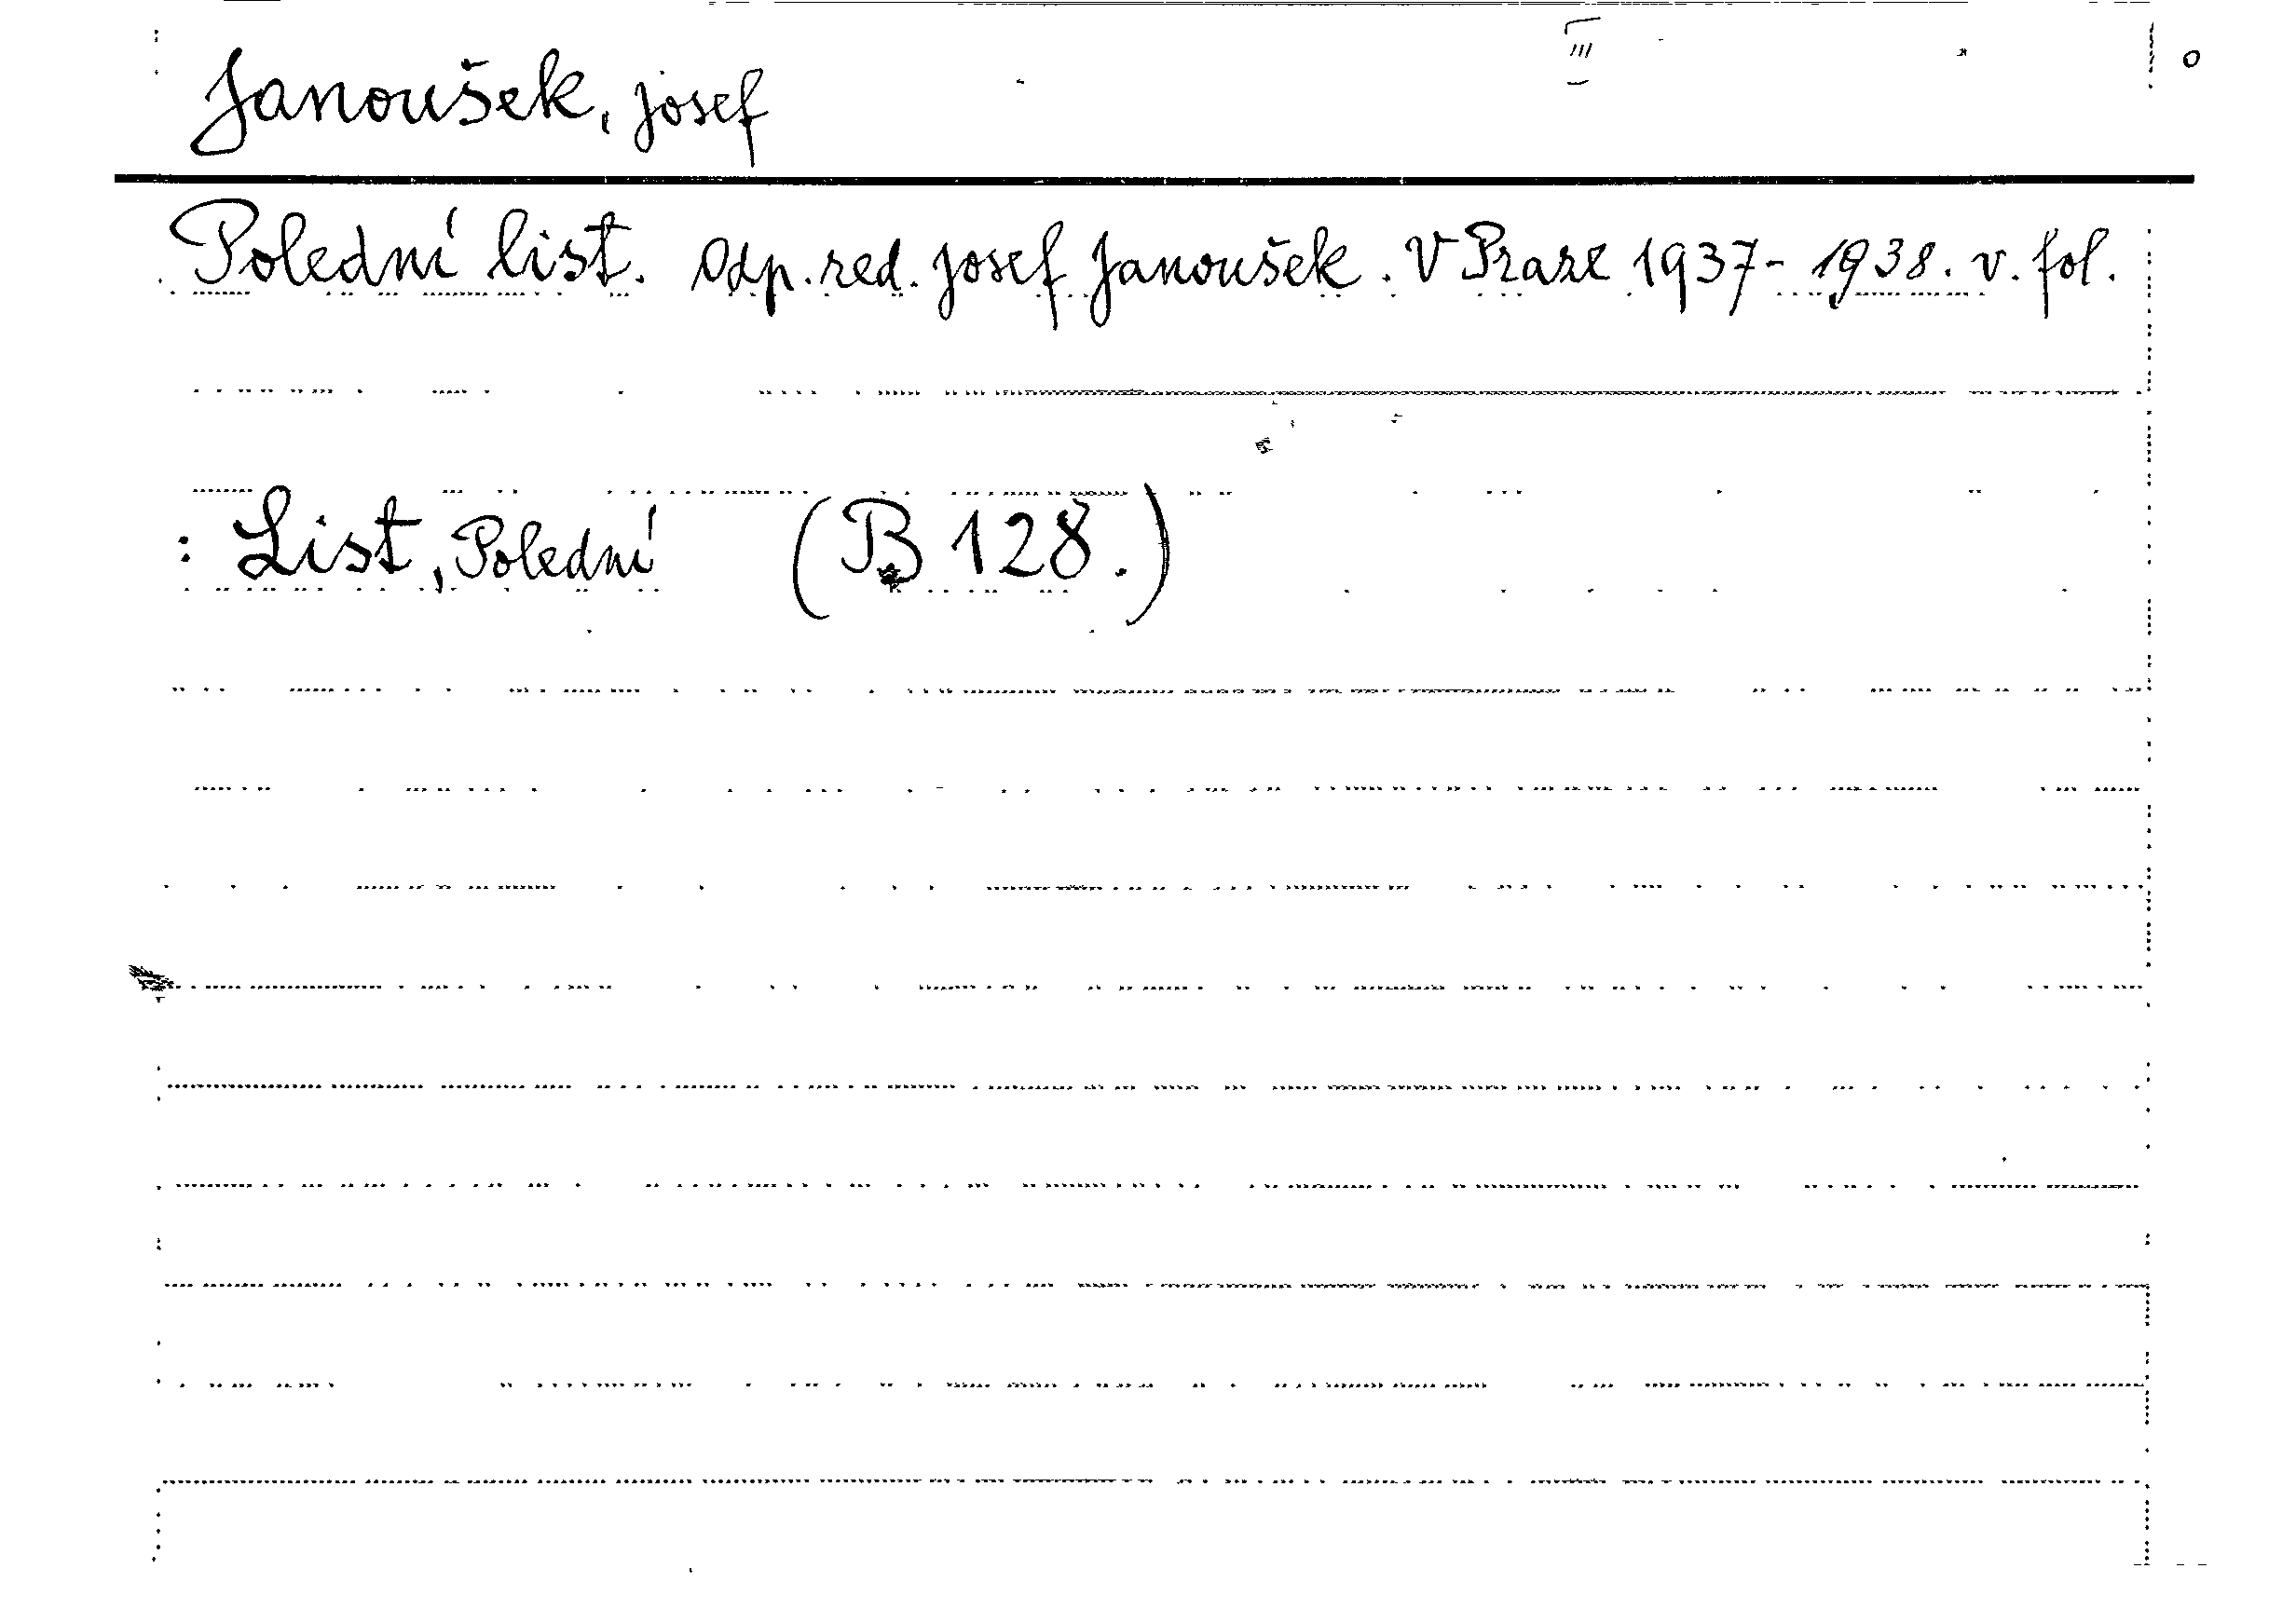 Janoušek, Josef
Polední list. Odp. red. Josef Janoušek. V Praze 1937-1938. v. fol.
: List, Polední (B 128.)